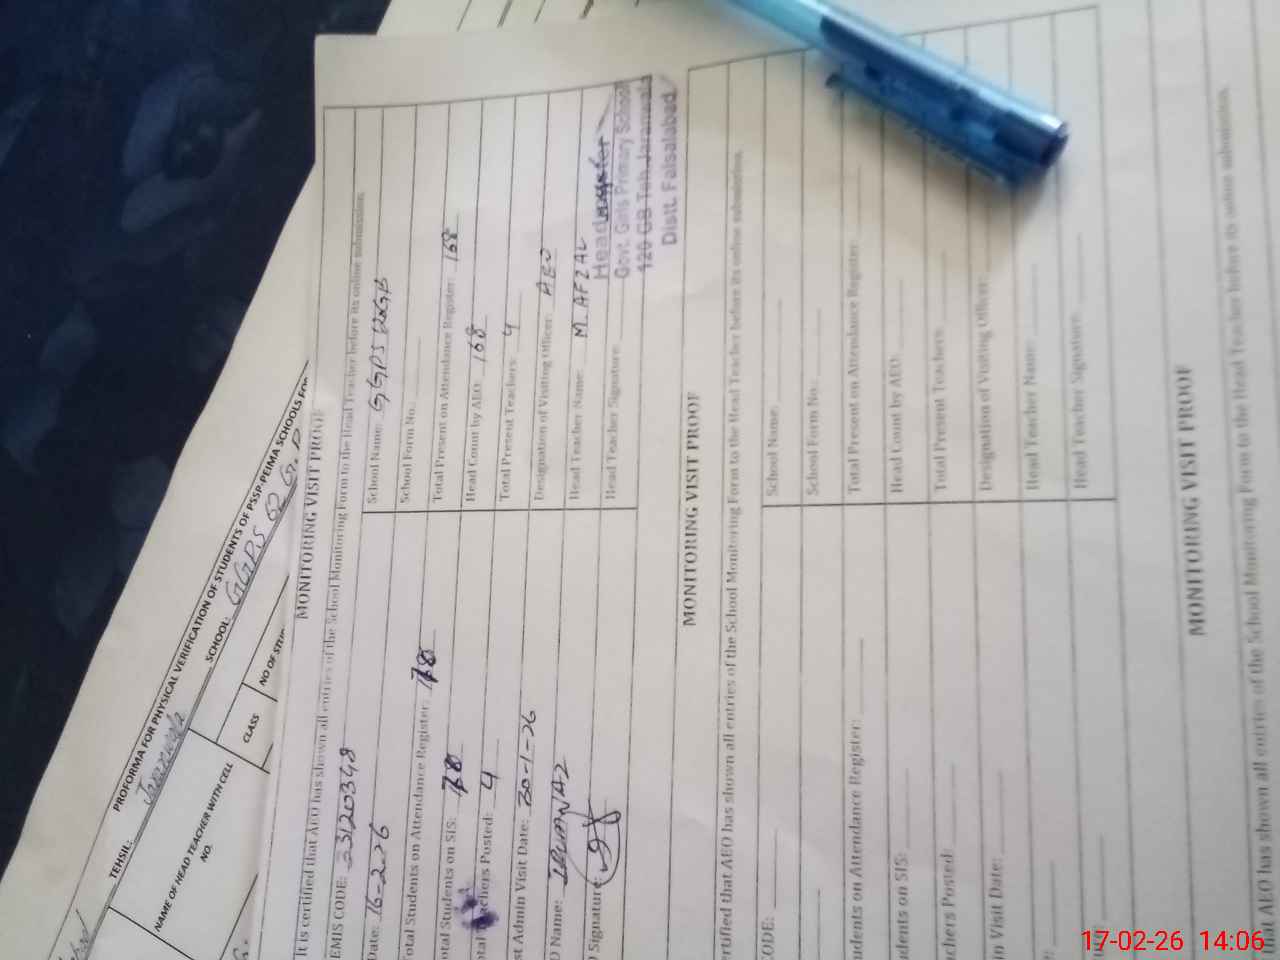 PROFORMA FOR PHYSICAL VERIFICATION OF STUDENTS OF PSSP-PEIMA SCHOOLS FOR
TEHSIL: Jaranwala SCHOOL: GGPS
NAME OF HEAD TEACHER WITH CELL NO.
CLASS
NO OF
MONITORING VISIT PROOF
It is certified that AEO has shown all entries of the School Monitoring Form to the Head Teacher before its online submission.
EMIS CODE: School Name: GGPS
Date: 16-2-26 School Form No.
otal Students on Attendance Register: Total Present on Attendance Register: 168
otal Students on SIS: Head Count by AEO: 168
otal Teachers Posted: 4 Total Present Teachers: 4
st Admin Visit Date: 30-1-26 Designation of Visiting Officer: AEO
O Name: Head Teacher Name: M. AFZAL
O Signature: Head Teacher Signature:
Head
Govt. Girls Primary School
GB Teh. Jaranwala
Distt. Faisalabad
MONITORING VISIT PROOF
ertified that AEO has shown all entries of the School Monitoring Form to the Head Teacher before its online submission.
CODE: School Name:
School Form No.
udents on Attendance Register: Total Present on Attendance Register:
udents on SIS: Head Count by AEO:
chers Posted: Total Present Teachers:
in Visit Date: Designation of Visiting Officer:
Head Teacher Name:
Head Teacher Signature:
MONITORING VISIT PROOF
that AEO has shown all entries of the School Monitoring Form to the Head Teacher before its online submission.
17-02-26 14:06